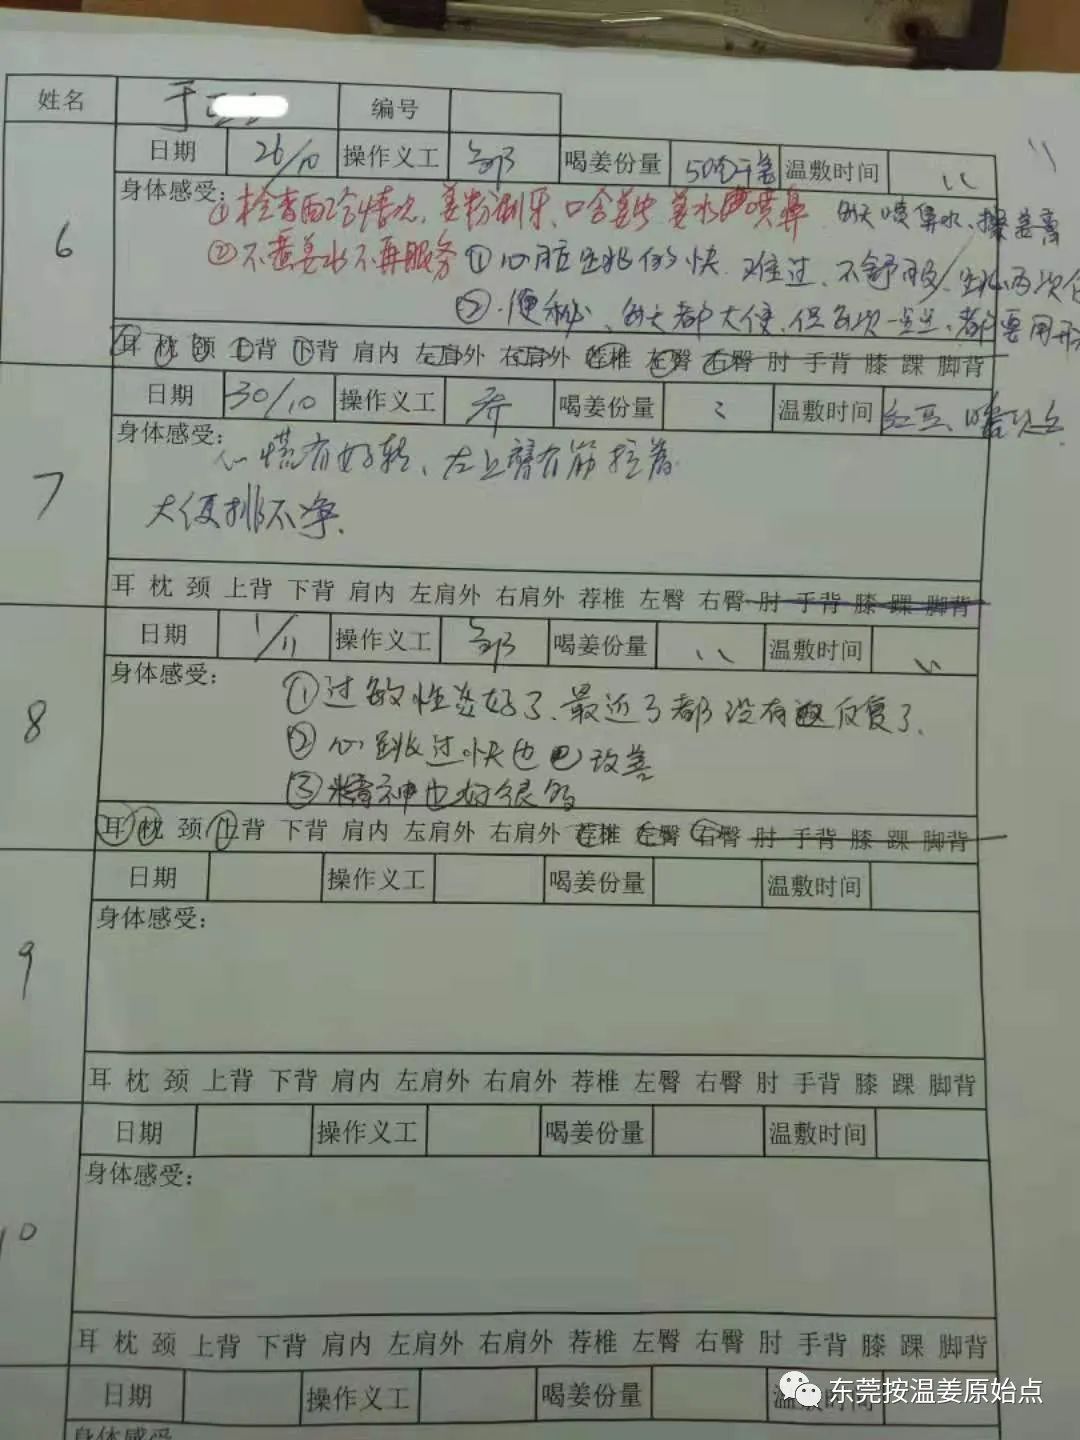 姓名 于 编号
日期 26/10 操作义工 喝姜份量 50克干姜 温敷时间 \\
6
身体感受: ①检查面诊情况、姜粉刷牙、口含姜片 姜水喷鼻 每天喷鼻水、擦姜膏
②不煮姜水不再服务 ①心脏 的快 难过、不舒服 两次
②便秘、每天都大便、但每次一点点、都要用
耳 枕 颈 上背 下背 肩内 左肩外 右肩外 荐椎 左臀 右臀 肘 手背 膝 踝 脚背
日期 30/10 操作义工 喝姜份量 温敷时间 红豆
7
身体感受: 心慌有好转、左上臂有筋拉着
大便排不净.
耳 枕 颈 上背 下背 肩内 左肩外 右肩外 荐椎 左臀 右臀 肘 手背 膝 踝 脚背
日期 1/11 操作义工 喝姜份量 \\ 温敷时间 \\
8
身体感受: ①过敏性炎好了、最近都没有反复了.
②心跳过快也已改善
③精神也好很多
耳 枕 颈 上背 下背 肩内 左肩外 右肩外 荐椎 左臀 右臀 肘 手背 膝 踝 脚背
日期 操作义工 喝姜份量 温敷时间
9
身体感受:
耳 枕 颈 上背 下背 肩内 左肩外 右肩外 荐椎 左臀 右臀 肘 手背 膝 踝 脚背
日期 操作义工 喝姜份量 温敷时间
10
身体感受:
耳 枕 颈 上背 下背 肩内 左肩外 右肩外 荐椎 左臀 右臀 肘 手背 膝 踝 脚背
日期 操作义工 喝姜份量 温敷时间
身体感受
东莞按温姜原始点